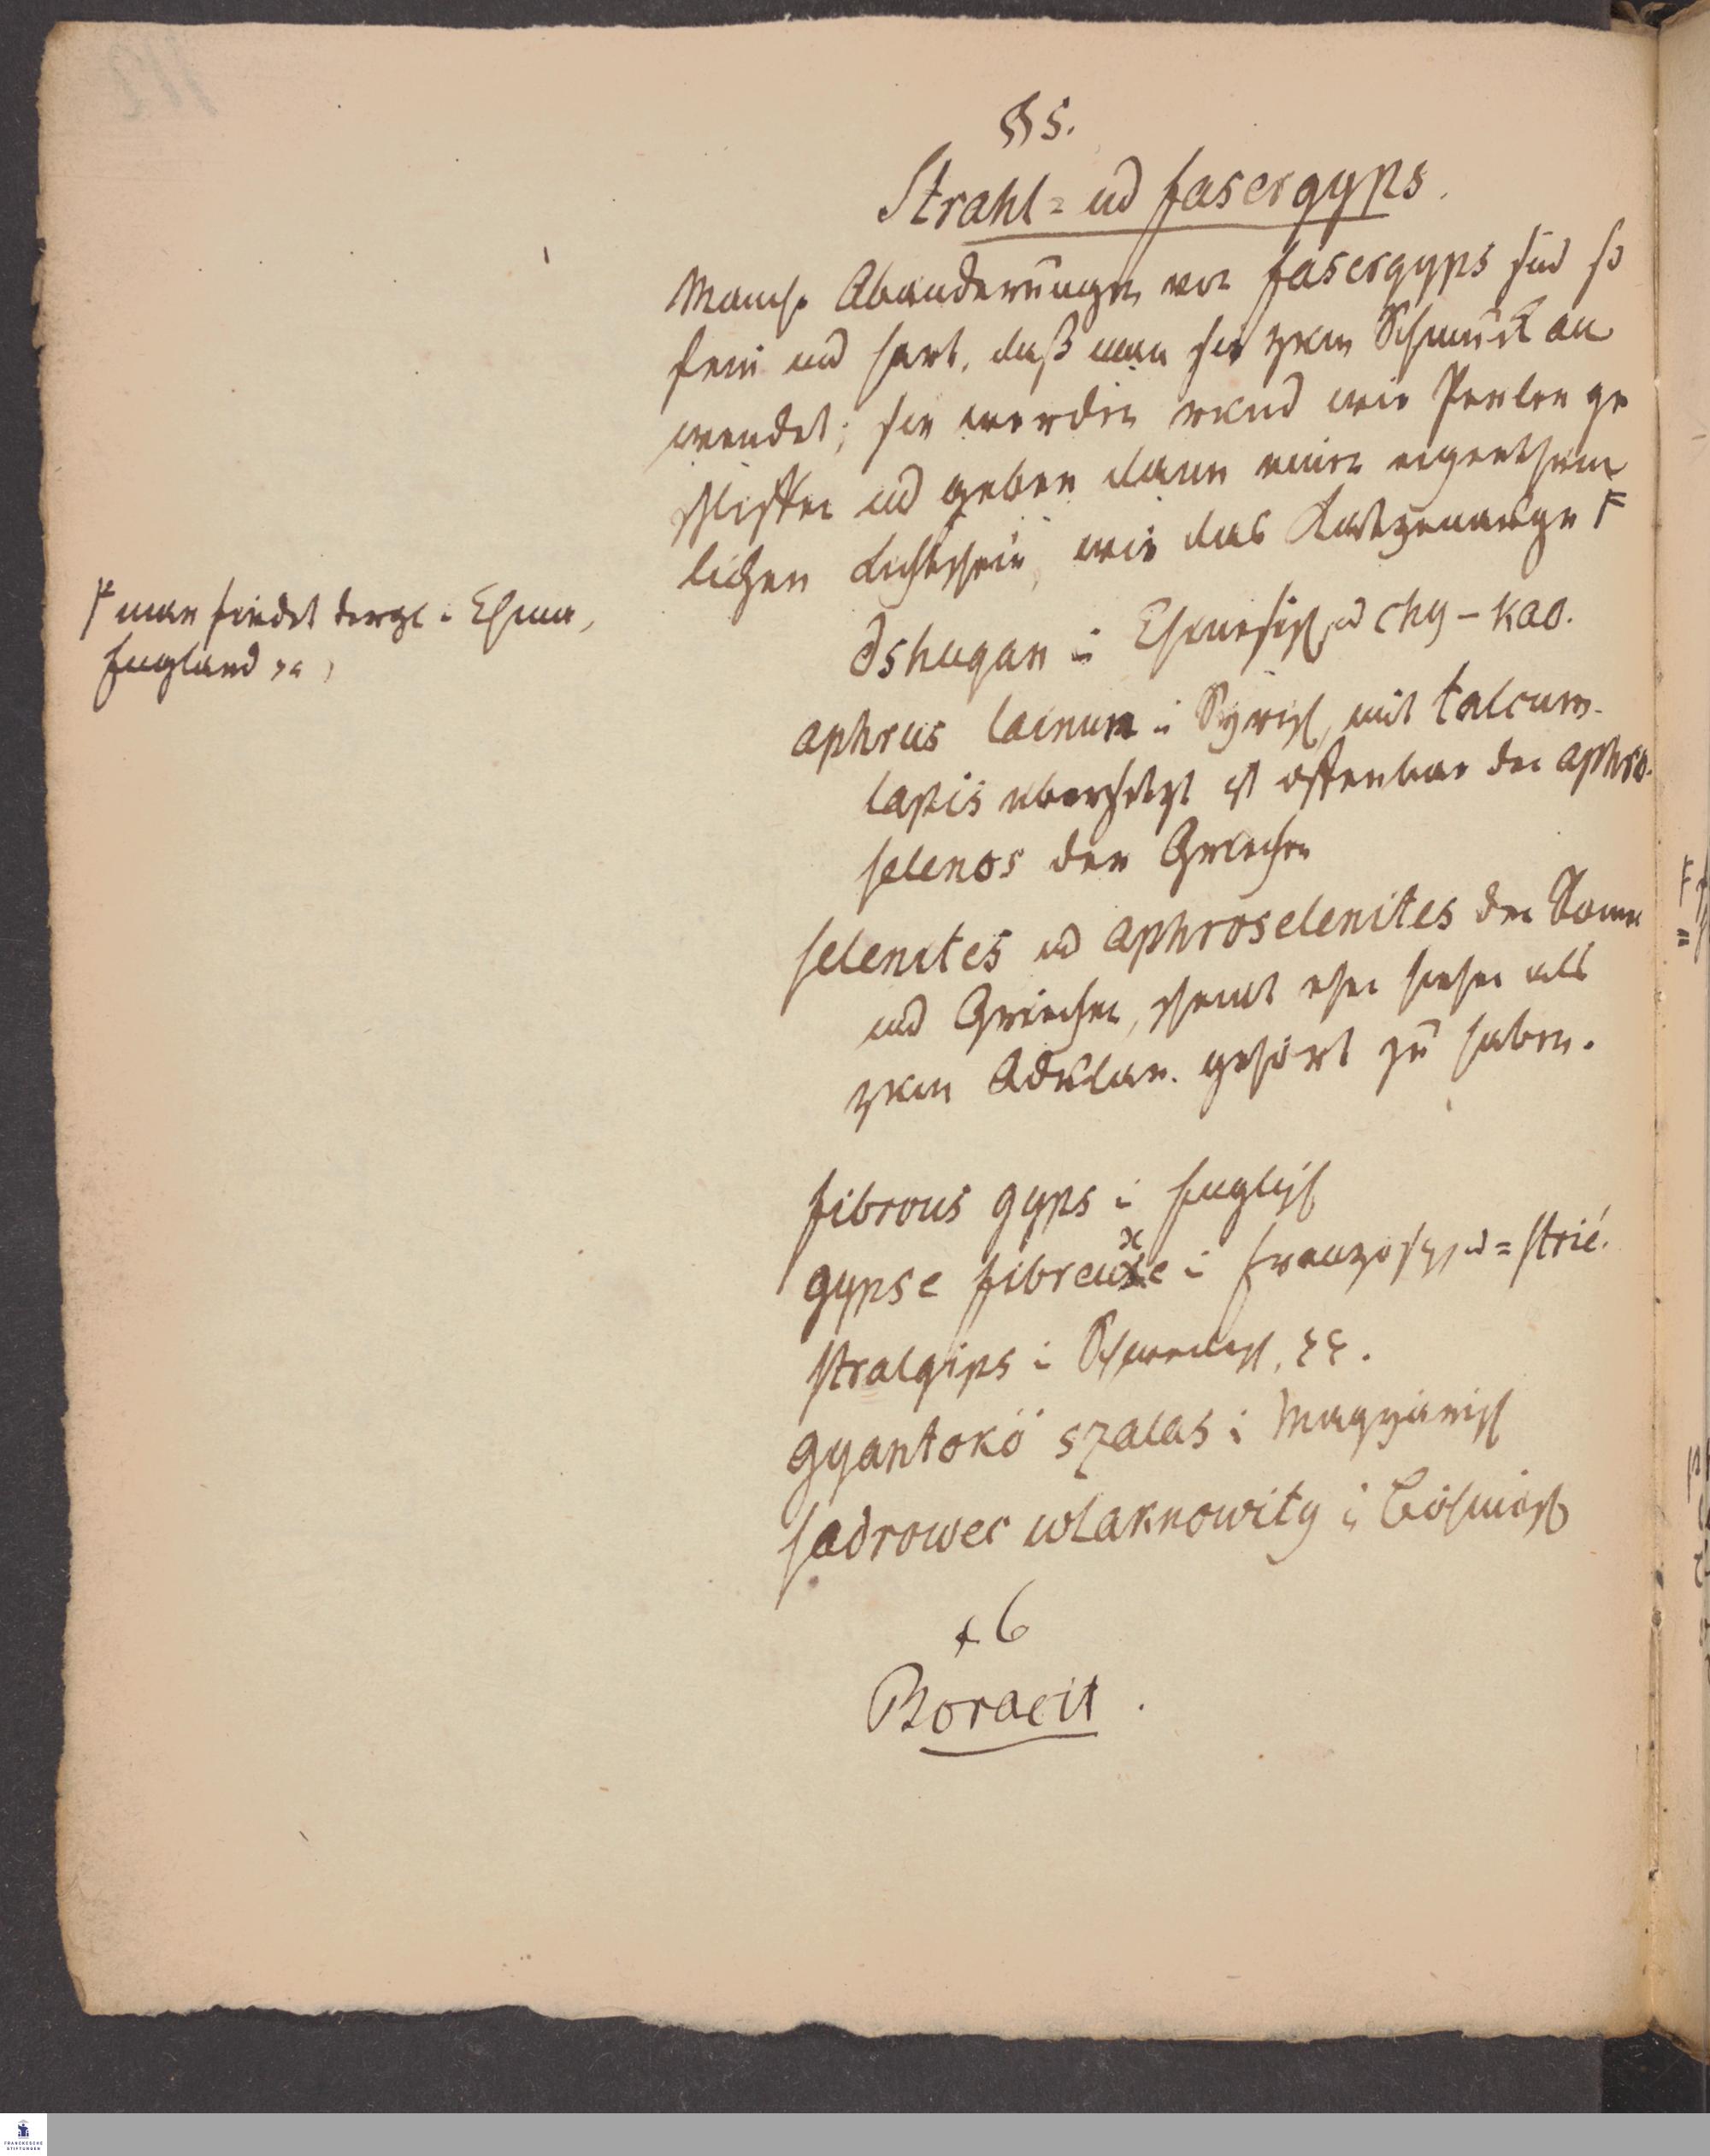 § 5.
Strahl= ud fasergyps.
Manche Abänderungen von fasergyps sind so
fein und hart, daß man sie zum Schmuck an
wendet; sie werden rund wie Perlen ge
schliffen ud geben dann einen eigenthüm
lichen Lichtschein, wie das Katzenauge F
F man findet dergl. i China,
England
Dshugan i Chinesisch ud chy-kao.
aphrus lainum i Syrisch, mit talcum
lapis übersetzt ist offenbar der aphro
selenos der Griechen
selenites ud aphroselenites der Römer
und Griechen, scheint eher hieher als
zum Adular. gehört zu haben.
fibrous gyps i Englisch
gypse fibreuxe i französisch ud = strié.
stralgips i Schwedisch,
gyantokö szalas i Magyarisch
sadrowec wlaknowity i Böhmisch
6
Boracit.
FRANCKESCHE
STIFTUNGEN